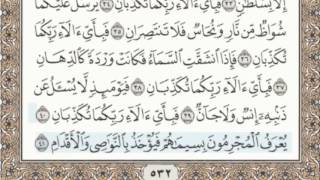 إِلَّا بِسُلْطَٰنٍ ﴿٣٣﴾ فَبِأَيِّ ءَالَآءِ رَبِّكُمَا تُكَذِّبَانِ ﴿٣٤﴾ يُرْسَلُ عَلَيْكُمَا
شُوَاظٌ مِّن نَّارٍ وَنُحَاسٌ فَلَا تَنتَصِرَانِ ﴿٣٥﴾ فَبِأَيِّ ءَالَآءِ رَبِّكُمَا
تُكَذِّبَانِ ﴿٣٦﴾ فَإِذَا ٱنشَقَّتِ ٱلسَّمَآءُ فَكَانَتْ وَرْدَةً كَٱلدِّهَانِ
﴿٣٧﴾ فَبِأَيِّ ءَالَآءِ رَبِّكُمَا تُكَذِّبَانِ ﴿٣٨﴾ فَيَوْمَئِذٍ لَّا يُسْـَٔلُ عَن
ذَنۢبِهِۦٓ إِنسٌ وَلَا جَآنٌّ ﴿٣٩﴾ فَبِأَيِّ ءَالَآءِ رَبِّكُمَا تُكَذِّبَانِ ﴿٤٠﴾
يُعْرَفُ ٱلْمُجْرِمُونَ بِسِيمَٰهُمْ فَيُؤْخَذُ بِٱلنَّوَٰصِى وَٱلْأَقْدَامِ ﴿٤١﴾
٥٣٢